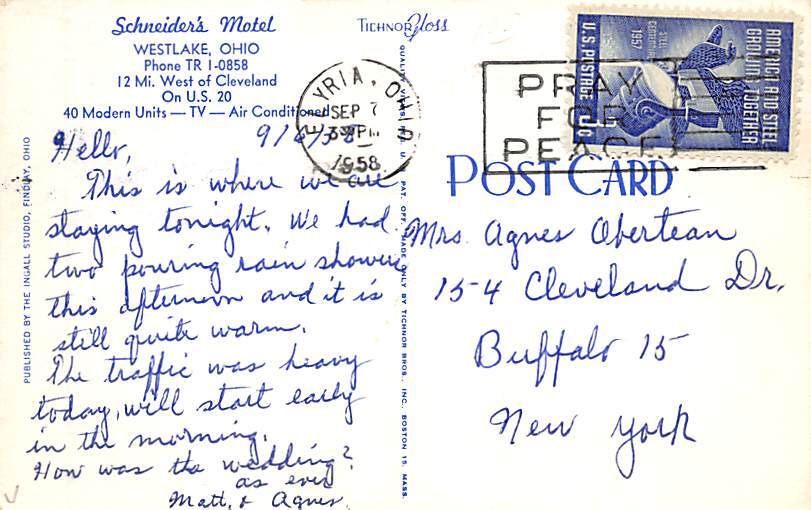 Schneider's Motel
WESTLAKE, OHIO
Phone TR 1-0858
12 Mi. West of Cleveland
On U.S. 20
40 Modern Units — TV — Air Conditioned
9/6/58
Hello,
This is where we are
staying tonight. We had
two pouring rain showers
this afternoon and it is
still quite warm.
The traffic was heavy
today, will start early
in the morning.
How was the wedding?
as ever
Matt, & Agnes.
PUBLISHED BY THE INGALL STUDIO, FINDLAY, OHIO
TICHNOR Gloss
QUALITY VIEWS, U. S. PAT. OFF. MADE ONLY BY TICHNOR BROS. INC. BOSTON 15, MASS.
ELYRIA, OHIO
SEP 7
PM
1958
PRAY
FOR
PEACE
AMERICA AND STEEL
GROWING TOGETHER
STEEL
CENTENNIAL
1957
U.S. POSTAGE 3¢
POST CARD
Mrs. Agnes Obertean
154 Cleveland Dr.
Buffalo 15
New York